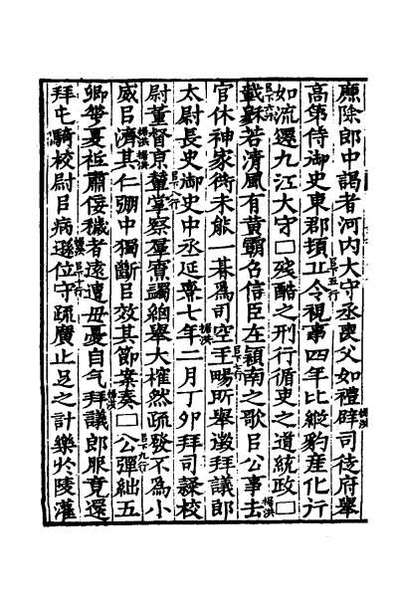 廉除郎中謁者河内大守丞喪父如禮辟司徒府舉
高第侍御史東郡頓丘令視事四年比縱豹産化行
如流遷九江大守□殘酷之刑行循吏之道統政□
載穌若清風有黄霸召信臣在潁南之歌㠯公事去
官休神家衖未能一朞爲司空王暢所舉徵拜議郎
太尉長史御史中丞延熹七年二月丁卯拜司隸校
尉董督京輦掌察羣寮蠲細舉大榷然疏發不為小
威㠯濟其仁弸中獨斷㠯效其節案奏□公彈絀五
卿華夏祗肅佞穢者遠遭母憂自气拜議郎服竟還
拜屯騎校尉㠯病遜位守疏廣止足之計樂於陵灌